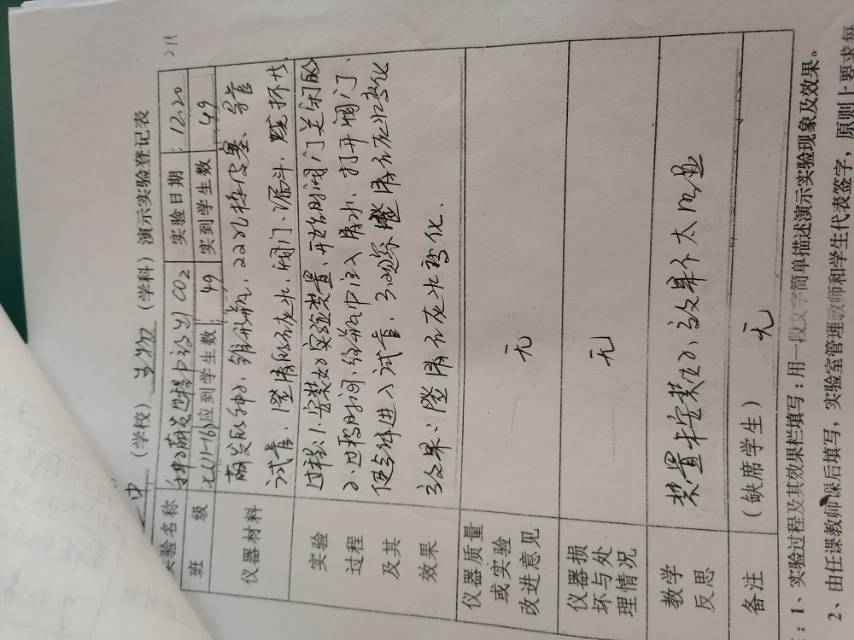 二中(学校) 生物(学科)演示实验登记表
211
实验名称 种子萌发过程中放出CO2 实验日期 12.20
班 级 七(1-16) 应到学生数 49 实到学生数 49
仪器材料 萌发的种子、锥形瓶、22孔橡皮塞、导管
试管、澄清的石灰水、阀门、漏斗、玻璃片
实验过程及其效果 过程:1.安装好实验装置,开始时阀门关闭的
2.过段时间,给瓶中注入清水,打开阀门,
使气体进入试管,3.观察澄清石灰水变化
效果:澄清石灰水变化.
仪器质量或实验改进意见 无
仪器损坏与处理情况 无
教学反思 装置未安装好,效果不太明显
备注 (缺席学生) 无
:1、实验过程及其效果栏填写:用一段文字简单描述演示实验现象及效果。
2、由任课教师课后填写,实验室管理教师和学生代表签字,原则上要求每